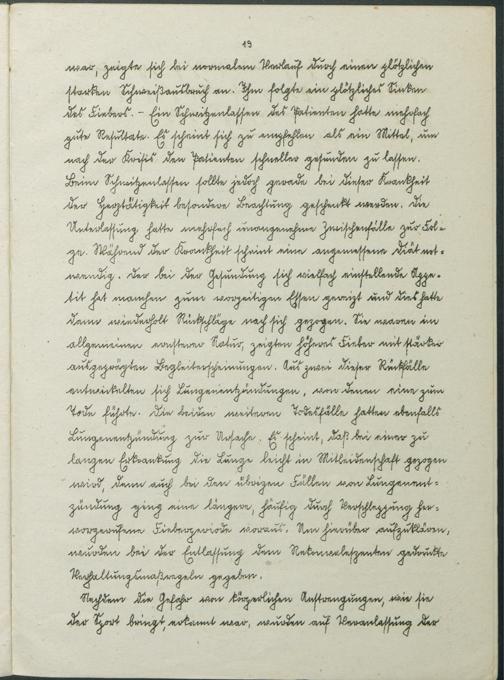 19
war, zeigte sich bei normalem Verlauf durch einen plötzlichen
starken Schweißausbruch an. Ihm folgte ein plötzliches Sinken
des Fiebers. – Ein Schwitzenlassen des Patienten hatte mehrfach
gute Resultate. Es scheint sich zu empfehlen als ein Mittel, um
nach der Krisis den Patienten schneller gesunden zu lassen.
Beim Schwitzenlassen sollte jedoch gerade bei dieser Krankheit
der Herztätigkeit besondere Beachtung geschenkt werden. Die
Unterlassung hatte mehrfach unangenehme Zwischenfälle zur Fol-
ge. Während der Krankheit scheint eine angemessene Diät not-
wendig. Der bei der Gesundung sich vielfach einstellende Appe-
tit hat manchen zum vorzeitigen Essen gereizt und dies hatte
dann wiederholt Rückschläge nach sich gezogen. Sie waren im
allgemeinen ernsterer Natur, zeigten höheres Fieber mit stärker
ausgeprägten Begleiterscheinungen. Aus zwei dieser Rückfälle
entwickelten sich Lungenentzündungen, von denen eine zum
Tode führte. Die beiden weiteren Todesfälle hatten ebenfalls
Lungenentzündung zur Ursache. Es scheint, daß bei einer zu
langen Erkrankung die Lunge leicht in Mitleidenschaft gezogen
wird, denn auch bei den übrigen Fällen von Lungenent-
zündung ging eine längere, häufig durch Verschleppung her-
vorgerufene Fieberperiode voraus. Um hierüber aufzuklären,
wurden bei der Entlassung dem Rekonvaleszenten gedruckte
Verhaltungsmaßregeln gegeben.
Nachdem die Gefahr von körperlichen Anstrengungen, wie sie
der Sport bringt, erkannt war, wurden auf Veranlassung der